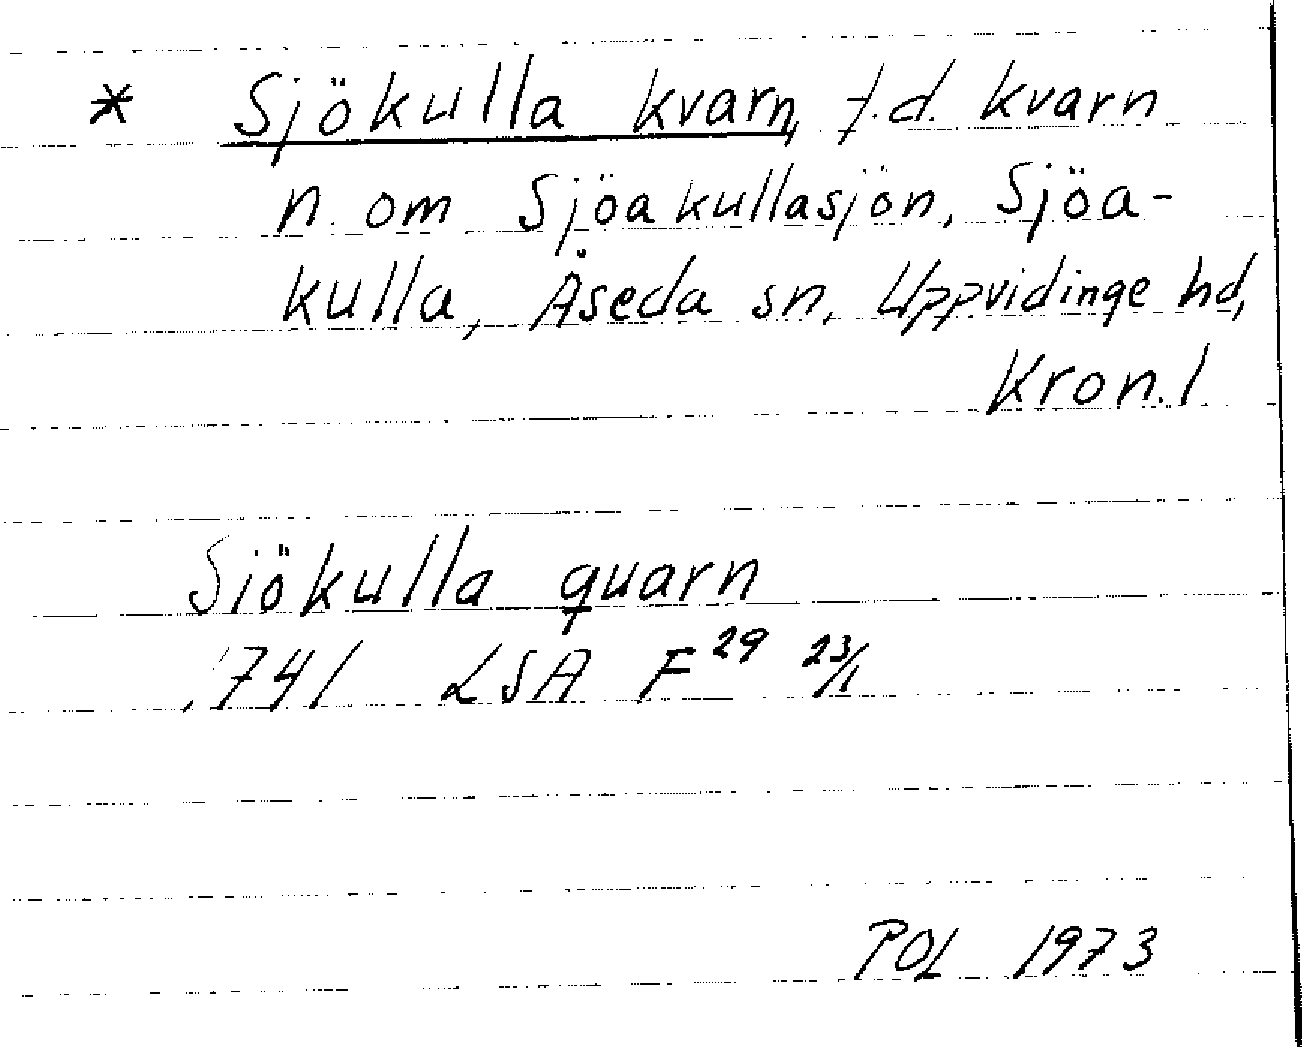 * Sjökulla kvarn, f.d. kvarn
n. om Sjöakullasjön, Sjöa-
kulla, Åseda sn, Uppvidinge hd,
Kron. l
Siökulla quarn
1741 LSA F 29 23/1
POL 1973